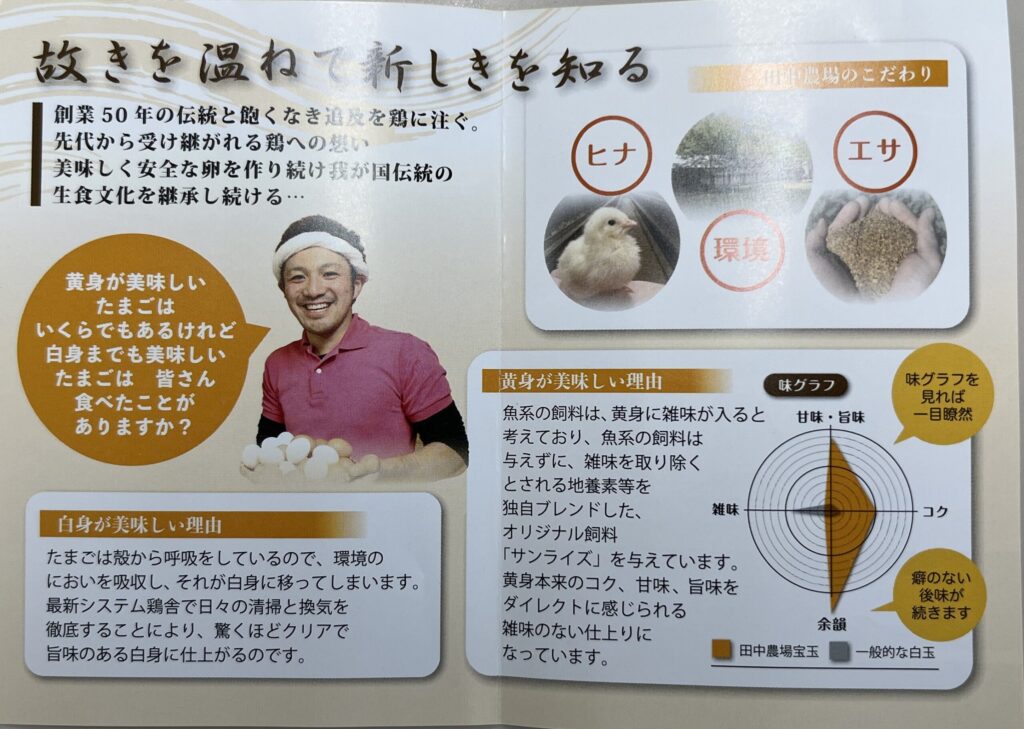 故きを温ねて新しきを知る
創業50年の伝統と飽くなき追及を鶏に注ぐ。
先代から受け継がれる鶏への想い
美味しく安全な卵を作り続け我が国伝統の
生食文化を継承し続ける…
黄身が美味しい
たまごは
いくらでもあるけれど
白身までも美味しい
たまごは 皆さん
食べたことが
ありますか？
白身が美味しい理由
たまごは殻から呼吸をしているので、環境の
においを吸収し、それが白身に移ってしまいます。
最新システム鶏舎で日々の清掃と換気を
徹底することにより、驚くほどクリアで
旨味のある白身に仕上がるのです。
田中農場のこだわり
ヒナ
環境
エサ
黄身が美味しい理由
魚系の飼料は、黄身に雑味が入ると
考えており、魚系の飼料は
与えずに、雑味を取り除く
とされる地養素等を
独自ブレンドした、
オリジナル飼料
「サンライズ」を与えています。
黄身本来のコク、甘味、旨味を
ダイレクトに感じられる
雑味のない仕上りに
なっています。
味グラフ
甘味・旨味
コク
余韻
雑味
味グラフを
見れば
一目瞭然
癖のない
後味が
続きます
田中農場宝玉
一般的な白玉